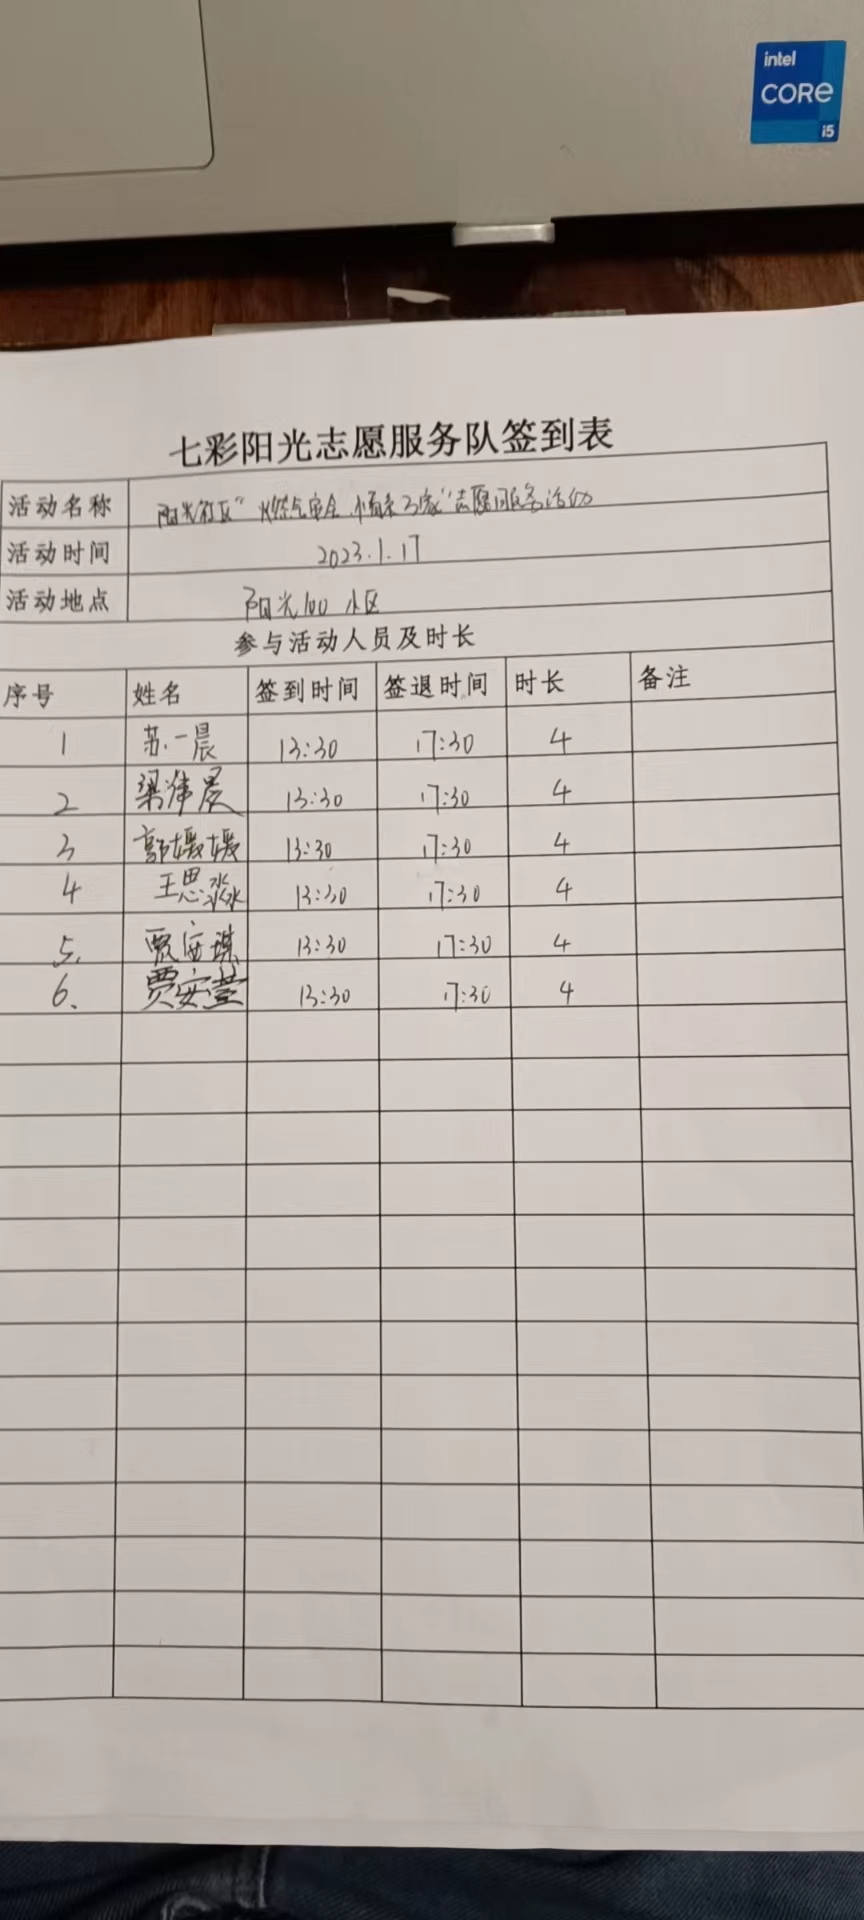 intel
CORE
i5
七彩阳光志愿服务队签到表
活动名称 阳光社区“燃气安全 情系万家”志愿服务活动
活动时间 2023.1.17
活动地点 阳光100小区
参与活动人员及时长
序号 姓名 签到时间 签退时间 时长 备注
1 苏一晨 13:30 17:30 4
2 梁伟晨 13:30 17:30 4
3 郭媛媛 13:30 17:30 4
4 王思淼 13:30 17:30 4
5. 贾安琪 13:30 17:30 4
6. 贾安萱 13:30 17:30 4